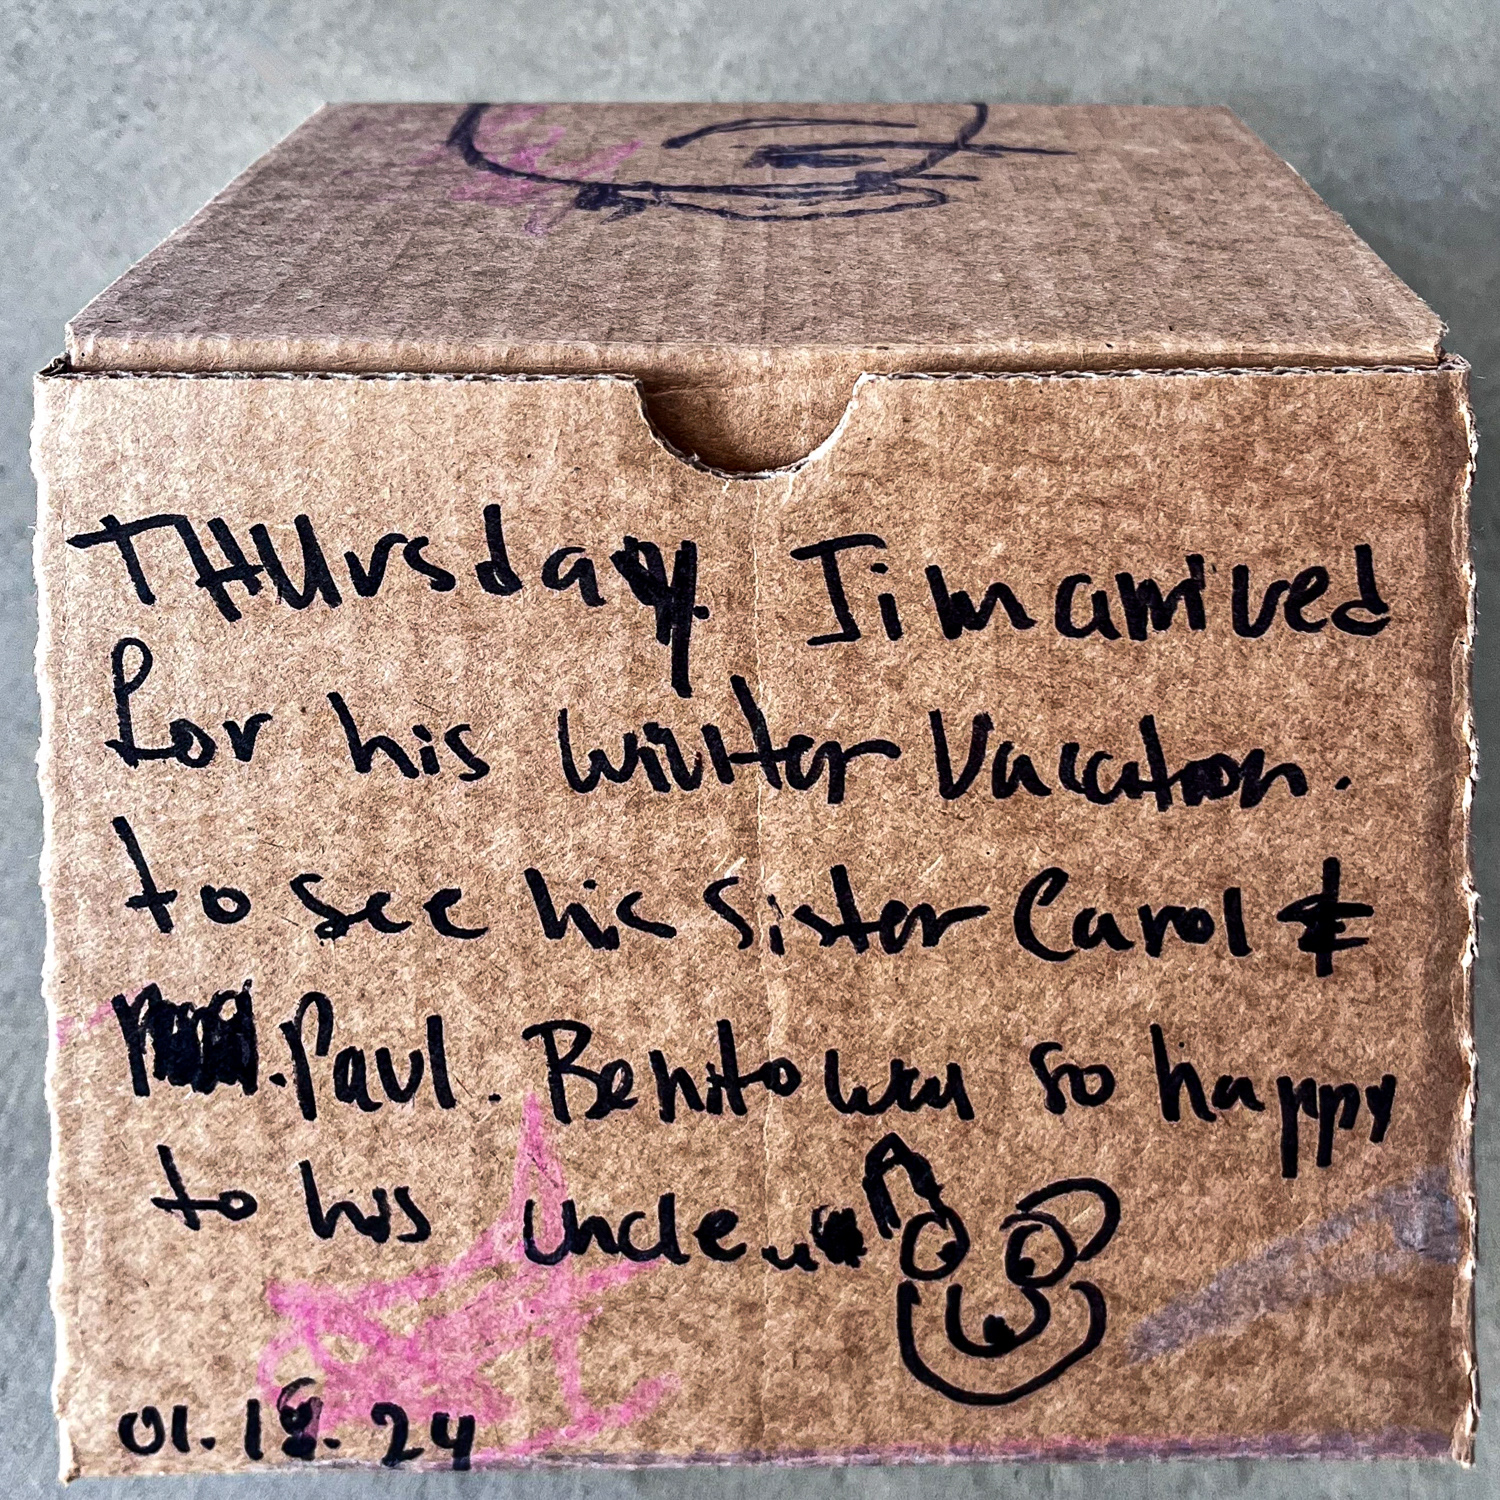 THUrsday. Jim arrived
for his winter Vacation.
to see his sister Carol &
Paul. Benito was so happy
to his uncle...
01.18.24